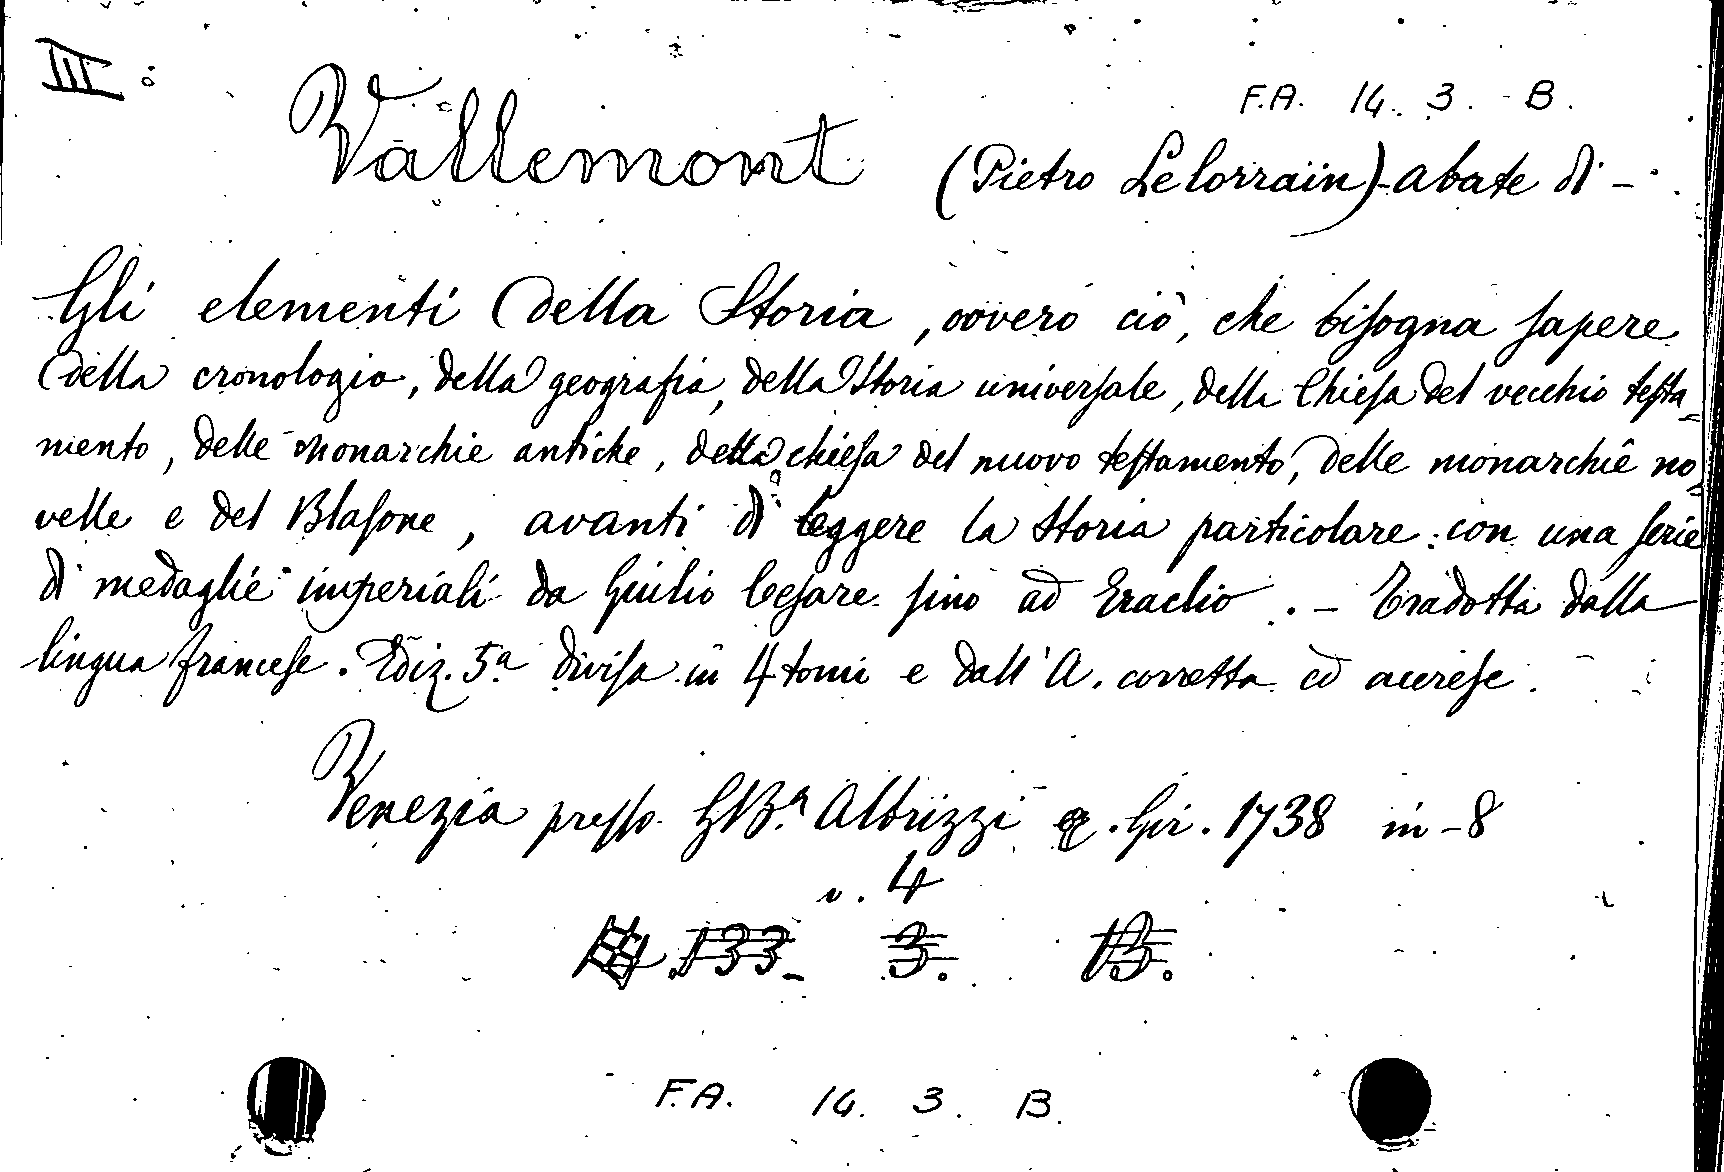 III.
F.A. 14. 3. B.
Vallemont (Pietro Lelorrain) - abate di - .
Gli elementi della Storia, ovvero ciò, che bisogna sapere
della cronologia, della geografia, della Storia universale, della Chiesa del vecchio testa-
mento, delle monarchie antiche, della chiesa del nuovo testamento, delle monarchie no-
velle e del Blasone, avanti di leggere la Storia particolare: con una serie
di medaglie imperiali da Giulio Cesare fino ad Eraclio. - Tradotta dalla
lingua francese. Ediz. 5.a divisa in 4 tomi e dall'A. corretta ed
Venezia presso GB.a Albrizzi q. Gir. 1738 in-8
v. 4
133- 3. B.
F.A. 14. 3. B.